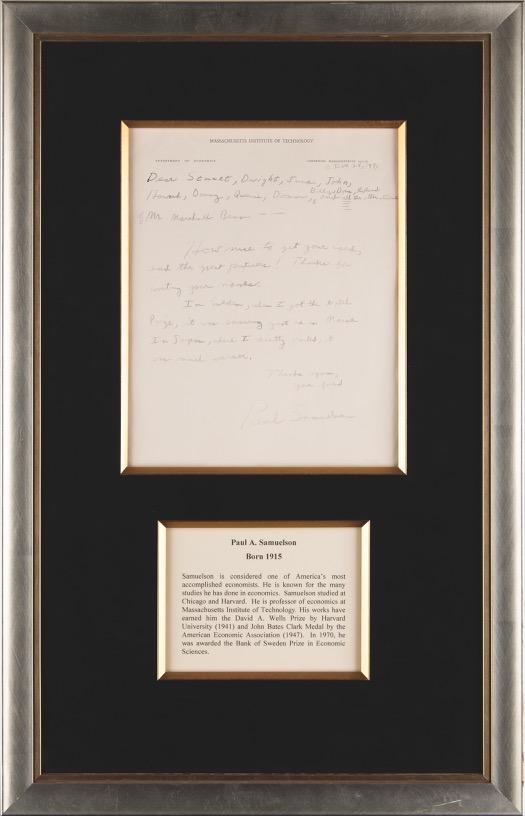 MASSACHUSETTS INSTITUTE OF TECHNOLOGY
DEPARTMENT OF ECONOMICS
CAMBRIDGE, MASSACHUSETTS
Dear Stewart, Dwight, John,
Howard, Danny,
of Mr. Marshall
How nice to get your cards,
and the great pictures! Thanks for
writing your names.
In Sweden, when I got the Nobel
Prize, it was snowing just as in
In Japan, which I recently visited, it
was much warmer.
Thanks again,
your friend
Paul Samuelson
Paul A. Samuelson
Born 1915
Samuelson is considered one of America's most
accomplished economists. He is known for the many
studies he has done in economics. Samuelson studied at
Chicago and Harvard. He is professor of economics at
Massachusetts Institute of Technology. His works have
earned him the David A. Wells Prize by Harvard
University (1941) and John Bates Clark Medal by the
American Economic Association (1947). In 1970, he
was awarded the Bank of Sweden Prize in Economic
Sciences.